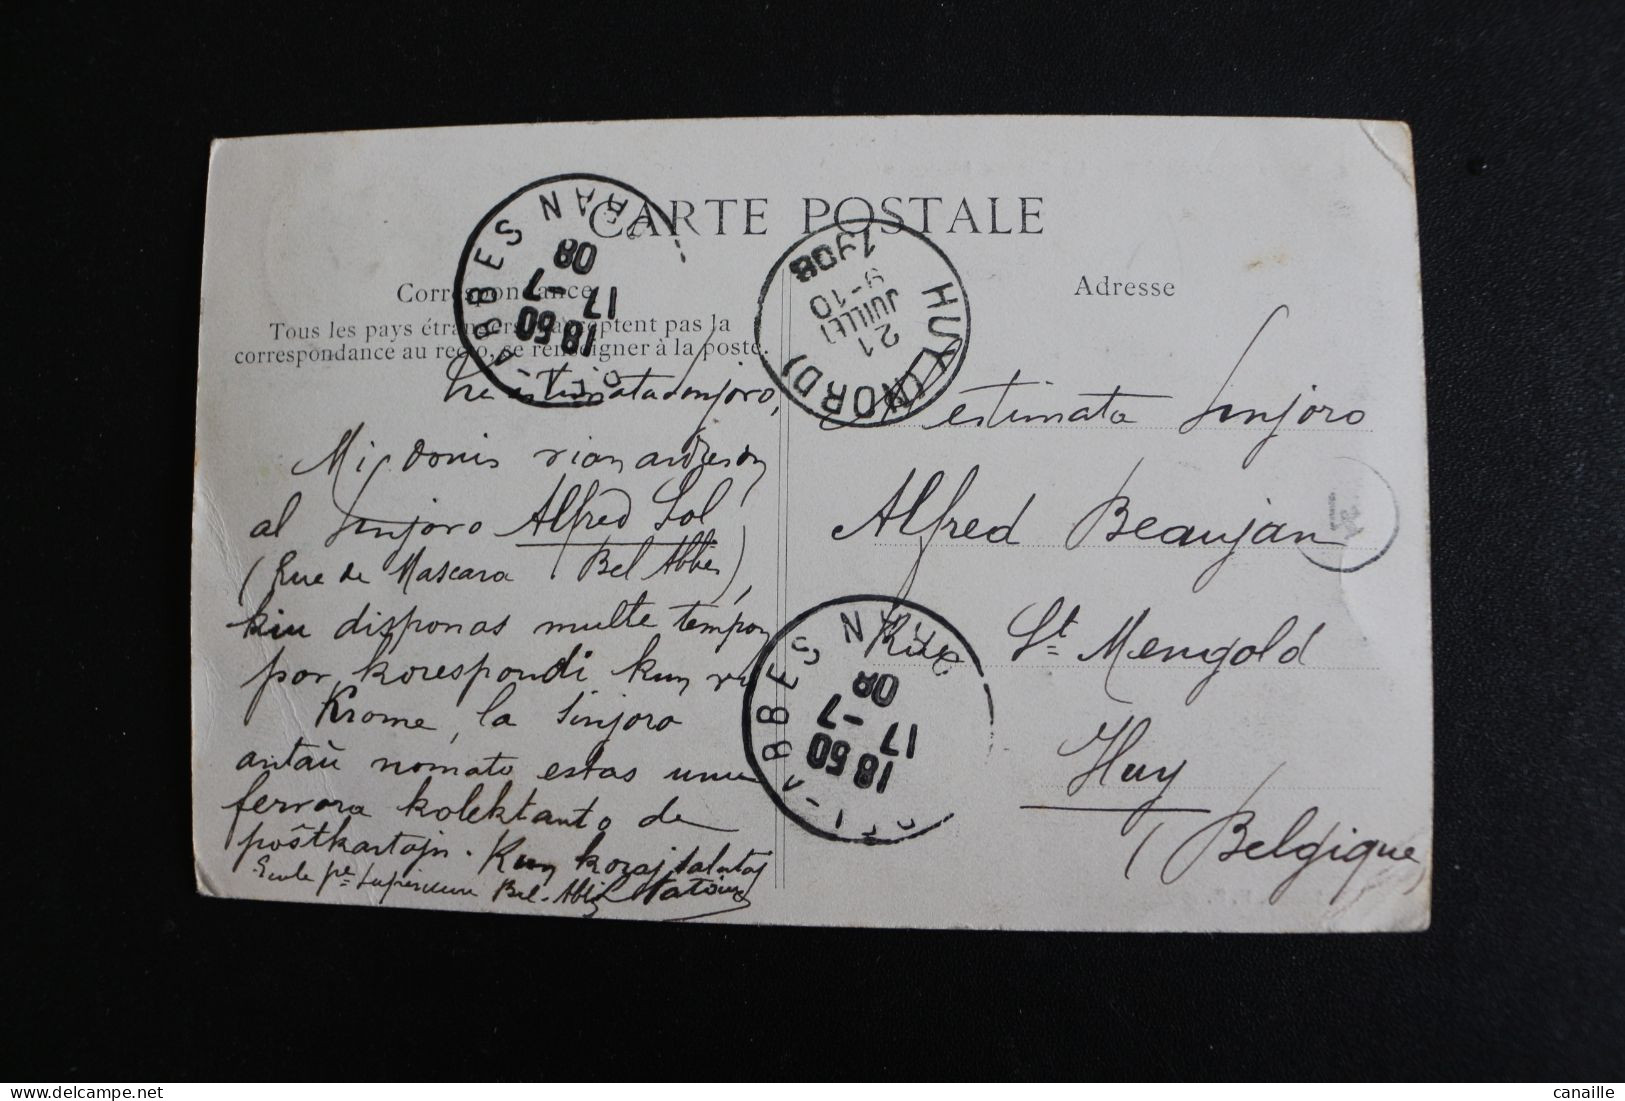 CARTE POSTALE
Correspondance
Adresse
Tous les pays étrangers n'acceptent pas la
correspondance au recto, se renseigner à la poste.
ORAN
ABBES
18 50
17 -7
08
HUY (NORD)
21
JUILLET
9-10
1908
Tre estimata sinjoro,
Mi donis vian adreson
al Sinjoro Alfred Sol
(Rue de Mascara Bel Abbès),
kiu disponas multe tempon
por korespondi kun vi
Krome, la Sinjoro
antaŭ nomato estas unu
fervora kolektanto de
poŝtkartojn. Kun koraj salutaj
Ecole pre Supérieure Bel-Abbès
estimata Sinjoro
Alfred Beaujan
Rue St Mengold
Huy
(Belgique)
ORAN
ABBES
18 50
17 -7
08
canaille